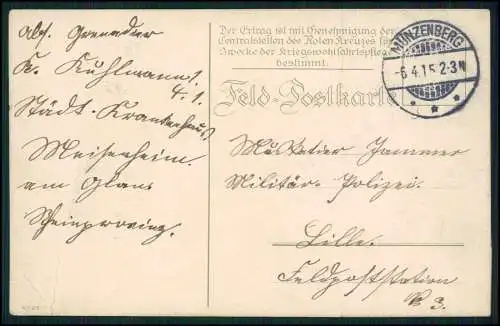 Der Ertrag ist mit Genehmigung der
Centralstellen des Roten Kreuzes für
Zwecke der Kriegswohlfahrtspflege
bestimmt.
Feld-Postkarte
MÜNZENBERG
-6.4.15.2-3N
Abs. Grenadier
K. Kuhlmann
4.1.
Städt. Krankenhaus
Meisenheim
am Glan
Rheinprovinz.
Musketier Jammer
Militär-Polizei.
Lille.
Feldpoststation
No 3.